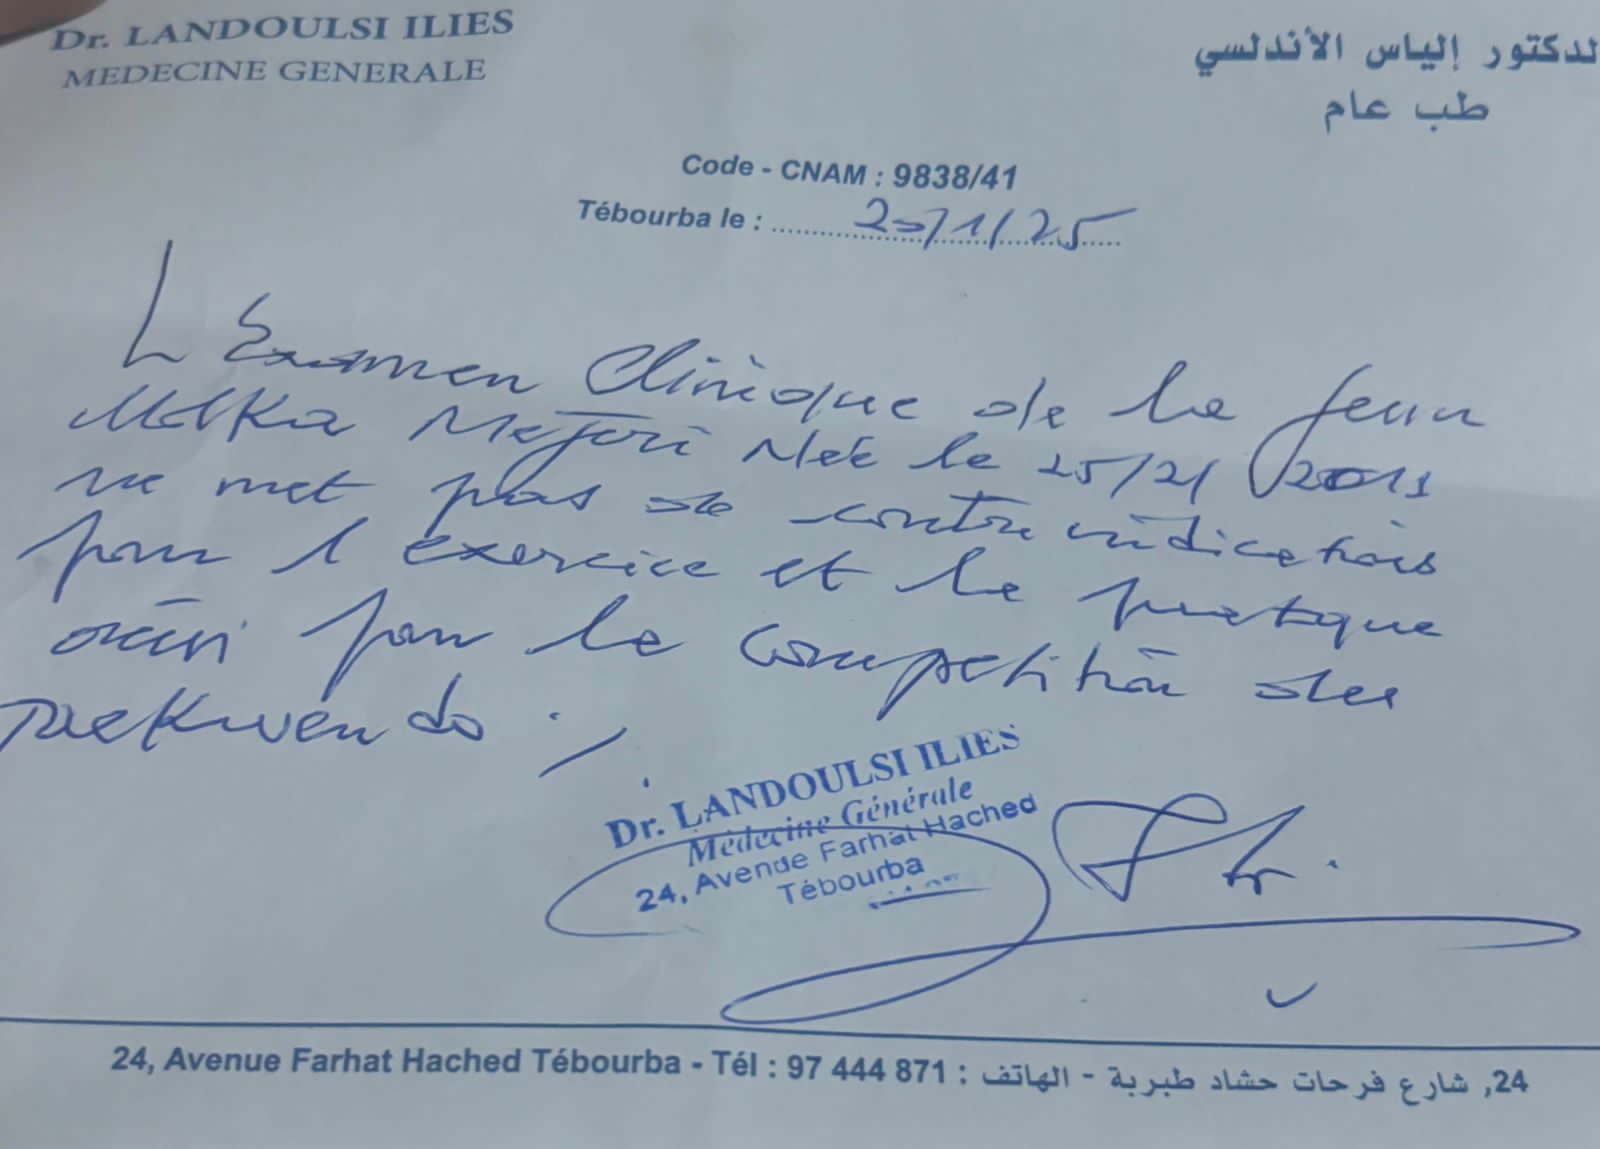 Dr. LANDOULSI ILIES
MEDECINE GENERALE
لدكتور إلياس الأندلسي
طب عام
Code - CNAM : 9838/41
Tébourba le : 20/1/25
L'Examen Clinique de la jeun
Melka Mejori Née le 25/2/2011
ne met pas de contre indications
pour l'exercice et la pratique
ainsi pour la compétition des
taekwendo
Dr. LANDOULSI ILIES
Médecine Générale
24, Avenue Farhat Hached
Tébourba
24, Avenue Farhat Hached Tébourba - Tél : 97 444 871 : 24, شارع فرحات حشاد طبربة - الهاتف